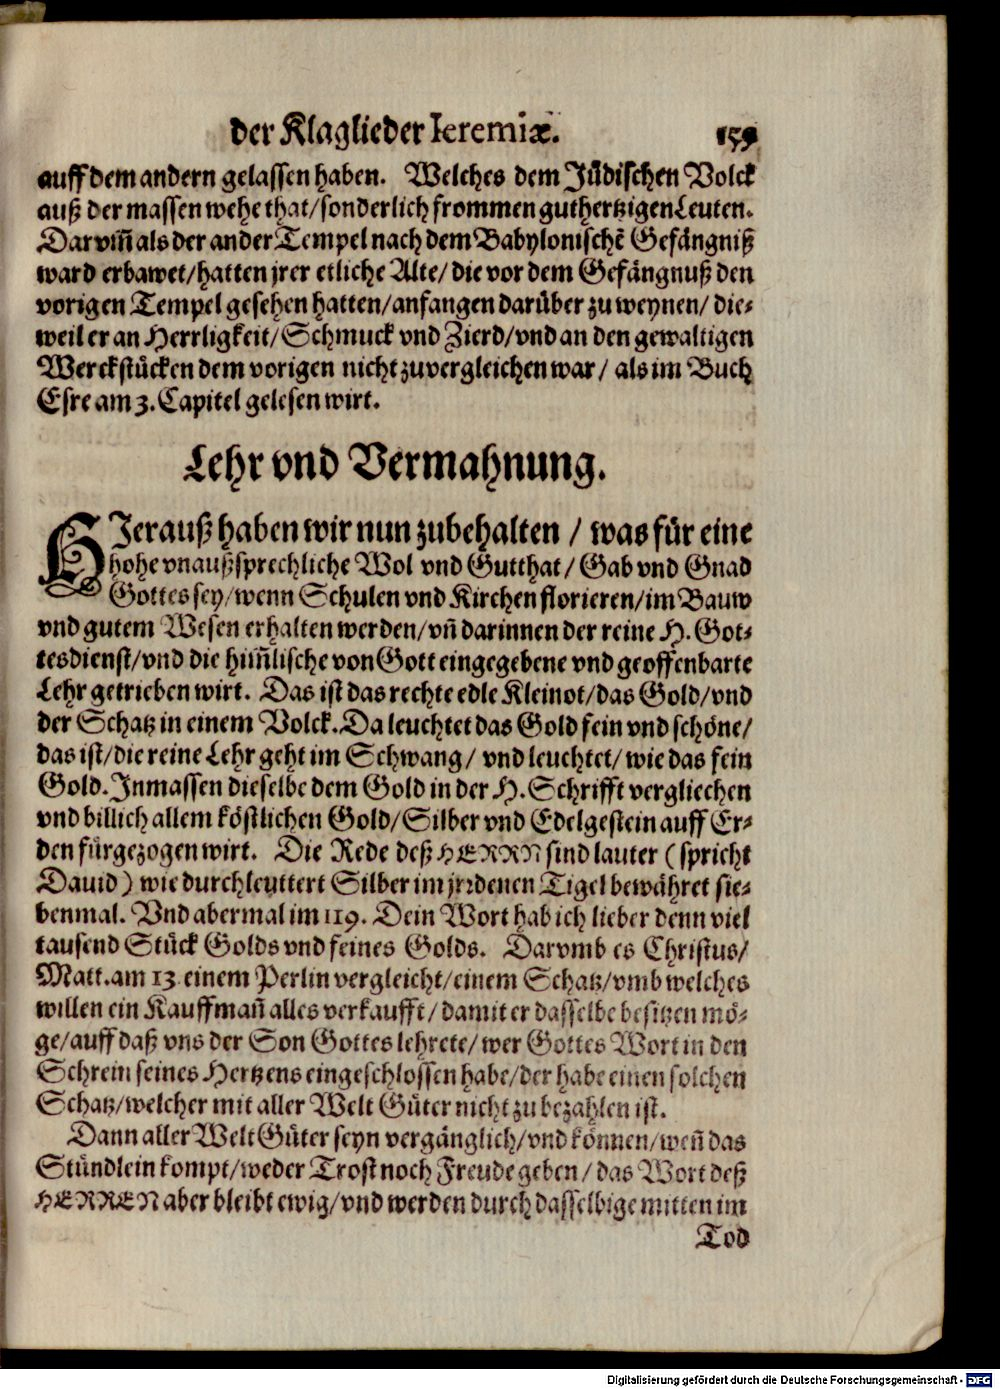 der Klaglieder Ieremiæ. 159
auff dem andern gelassen haben. Welches dem Jüdischen Volck
auß der massen wehe that/sonderlich frommen guthertzigen Leuten.
Darvm̃ als der ander Tempel nach dem Babylonischẽ Gefängniß
ward erbawet/hatten jrer etliche Alte/die vor dem Gefängnuß den
vorigen Tempel gesehen hatten/anfangen darüber zu weynen/ die-
weil er an Herrligkeit/Schmuck vnd Zierd/vnd an den gewaltigen
Werckstücken dem vorigen nicht zuvergleichen war/ als im Buch
Esre am 3. Capitel gelesen wirt.
Lehr vnd Vermahnung.
HIerauß haben wir nun zubehalten / was für eine
hohe vnaußsprechliche Wol vnd Gutthat/ Gab vnd Gnad
Gottes sey/wenn Schulen vnd Kirchen florieren/im Bauw
vnd gutem Wesen erhalten werden/vñ darinnen der reine H. Got-
tesdienst/vnd die him̃lische von Gott eingegebene vnd geoffenbarte
Lehr getrieben wirt. Das ist das rechte edle Kleinot/das Gold/vnd
der Schatz in einem Volck. Da leuchtet das Gold fein vnd schöne/
das ist/die reine Lehr geht im Schwang/ vnd leuchtet/ wie das fein
Gold. Inmassen dieselbe dem Gold in der H. Schrifft vergliechen
vnd billich allem köstlichen Gold/Silber vnd Edelgestein auff Er-
den fürgezogen wirt. Die Rede deß HERRN sind lauter (spricht
Dauid) wie durchleuttert Silber im jrrdenen Tigel bewähret sie-
benmal. Vnd abermal im 119. Dein Wort hab ich lieber denn viel
tausend Stück Golds vnd feines Golds. Darvmb es Christus/
Matt. am 13 einem Perlin vergleicht/einem Schatz/vmb welches
willen ein Kauffmañ alles verkaufft/damit er dasselbe besitzen mö-
ge/auff daß vns der Son Gottes lehrete/wer Gottes Wort in den
Schrein seines Hertzens eingeschlossen habe/der habe einen solchen
Schatz/welcher mit aller Welt Güter nicht zu bezahlen ist.
Dann aller Welt Güter seyn vergänglich/vnd können/weñ das
Stündlein kompt/weder Trost noch Freude geben/ das Wort deß
HERREN aber bleibt ewig/vnd werden durch dasselbige mitten im
Tod
Digitalisierung gefördert durch die Deutsche Forschungsgemeinschaft - DFG